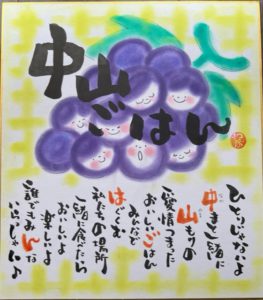 中山
ごはん
ひとりじゃないよ
中まと一緒に
山もりの
愛情つまった
おいしいごはん
みんなで
はぐくむ
私たちの場所
一緒に食べたら
おいしいよ
楽しいよ
誰でもみんな
いらっしゃいよ